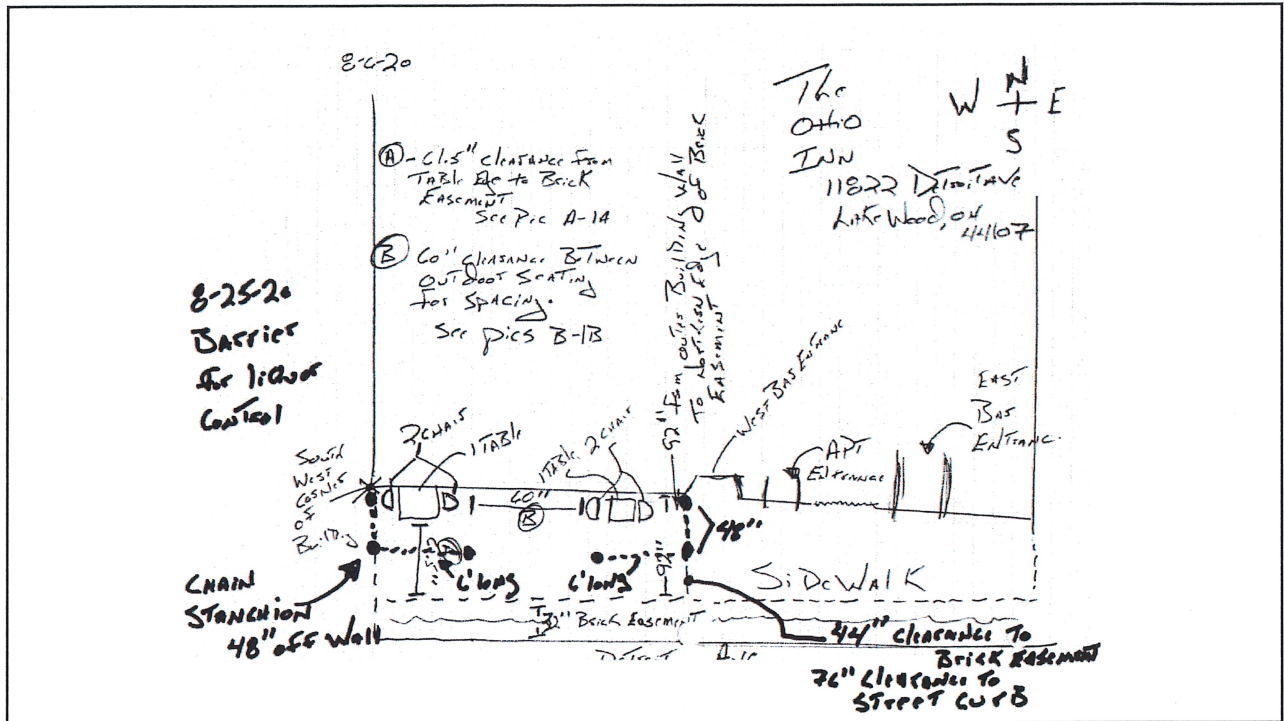 8-6-20
The
OHIO
INN
11822 Detroit Ave
Lakewood, OH
44107
N
W E
S
(A) - 61.5" Clearance From
Table Edge to Brick
Easement
See Pic A-1A
(B) 60" Clearance Between
Outdoor Seating
For Spacing.
See pics B-1B
8-25-20
Barrier
for liquor
Control
92" From outer Building Wall
To Northern Edge of Brick
Easement
West Bar Entrance
East
Bar
Entranc.
APT
Entrance
2 Chair
1 Table
1 Table, 2 Chair
South
West
Corner
of
Building
60"
(B)
48"
92"
6' long
6' long
Sidewalk
Chain
Stanchion
48" off Wall
32" Brick Easement
Detroit Ave
44" Clearance To
Brick Easement
76" Clearance To
Street Curb